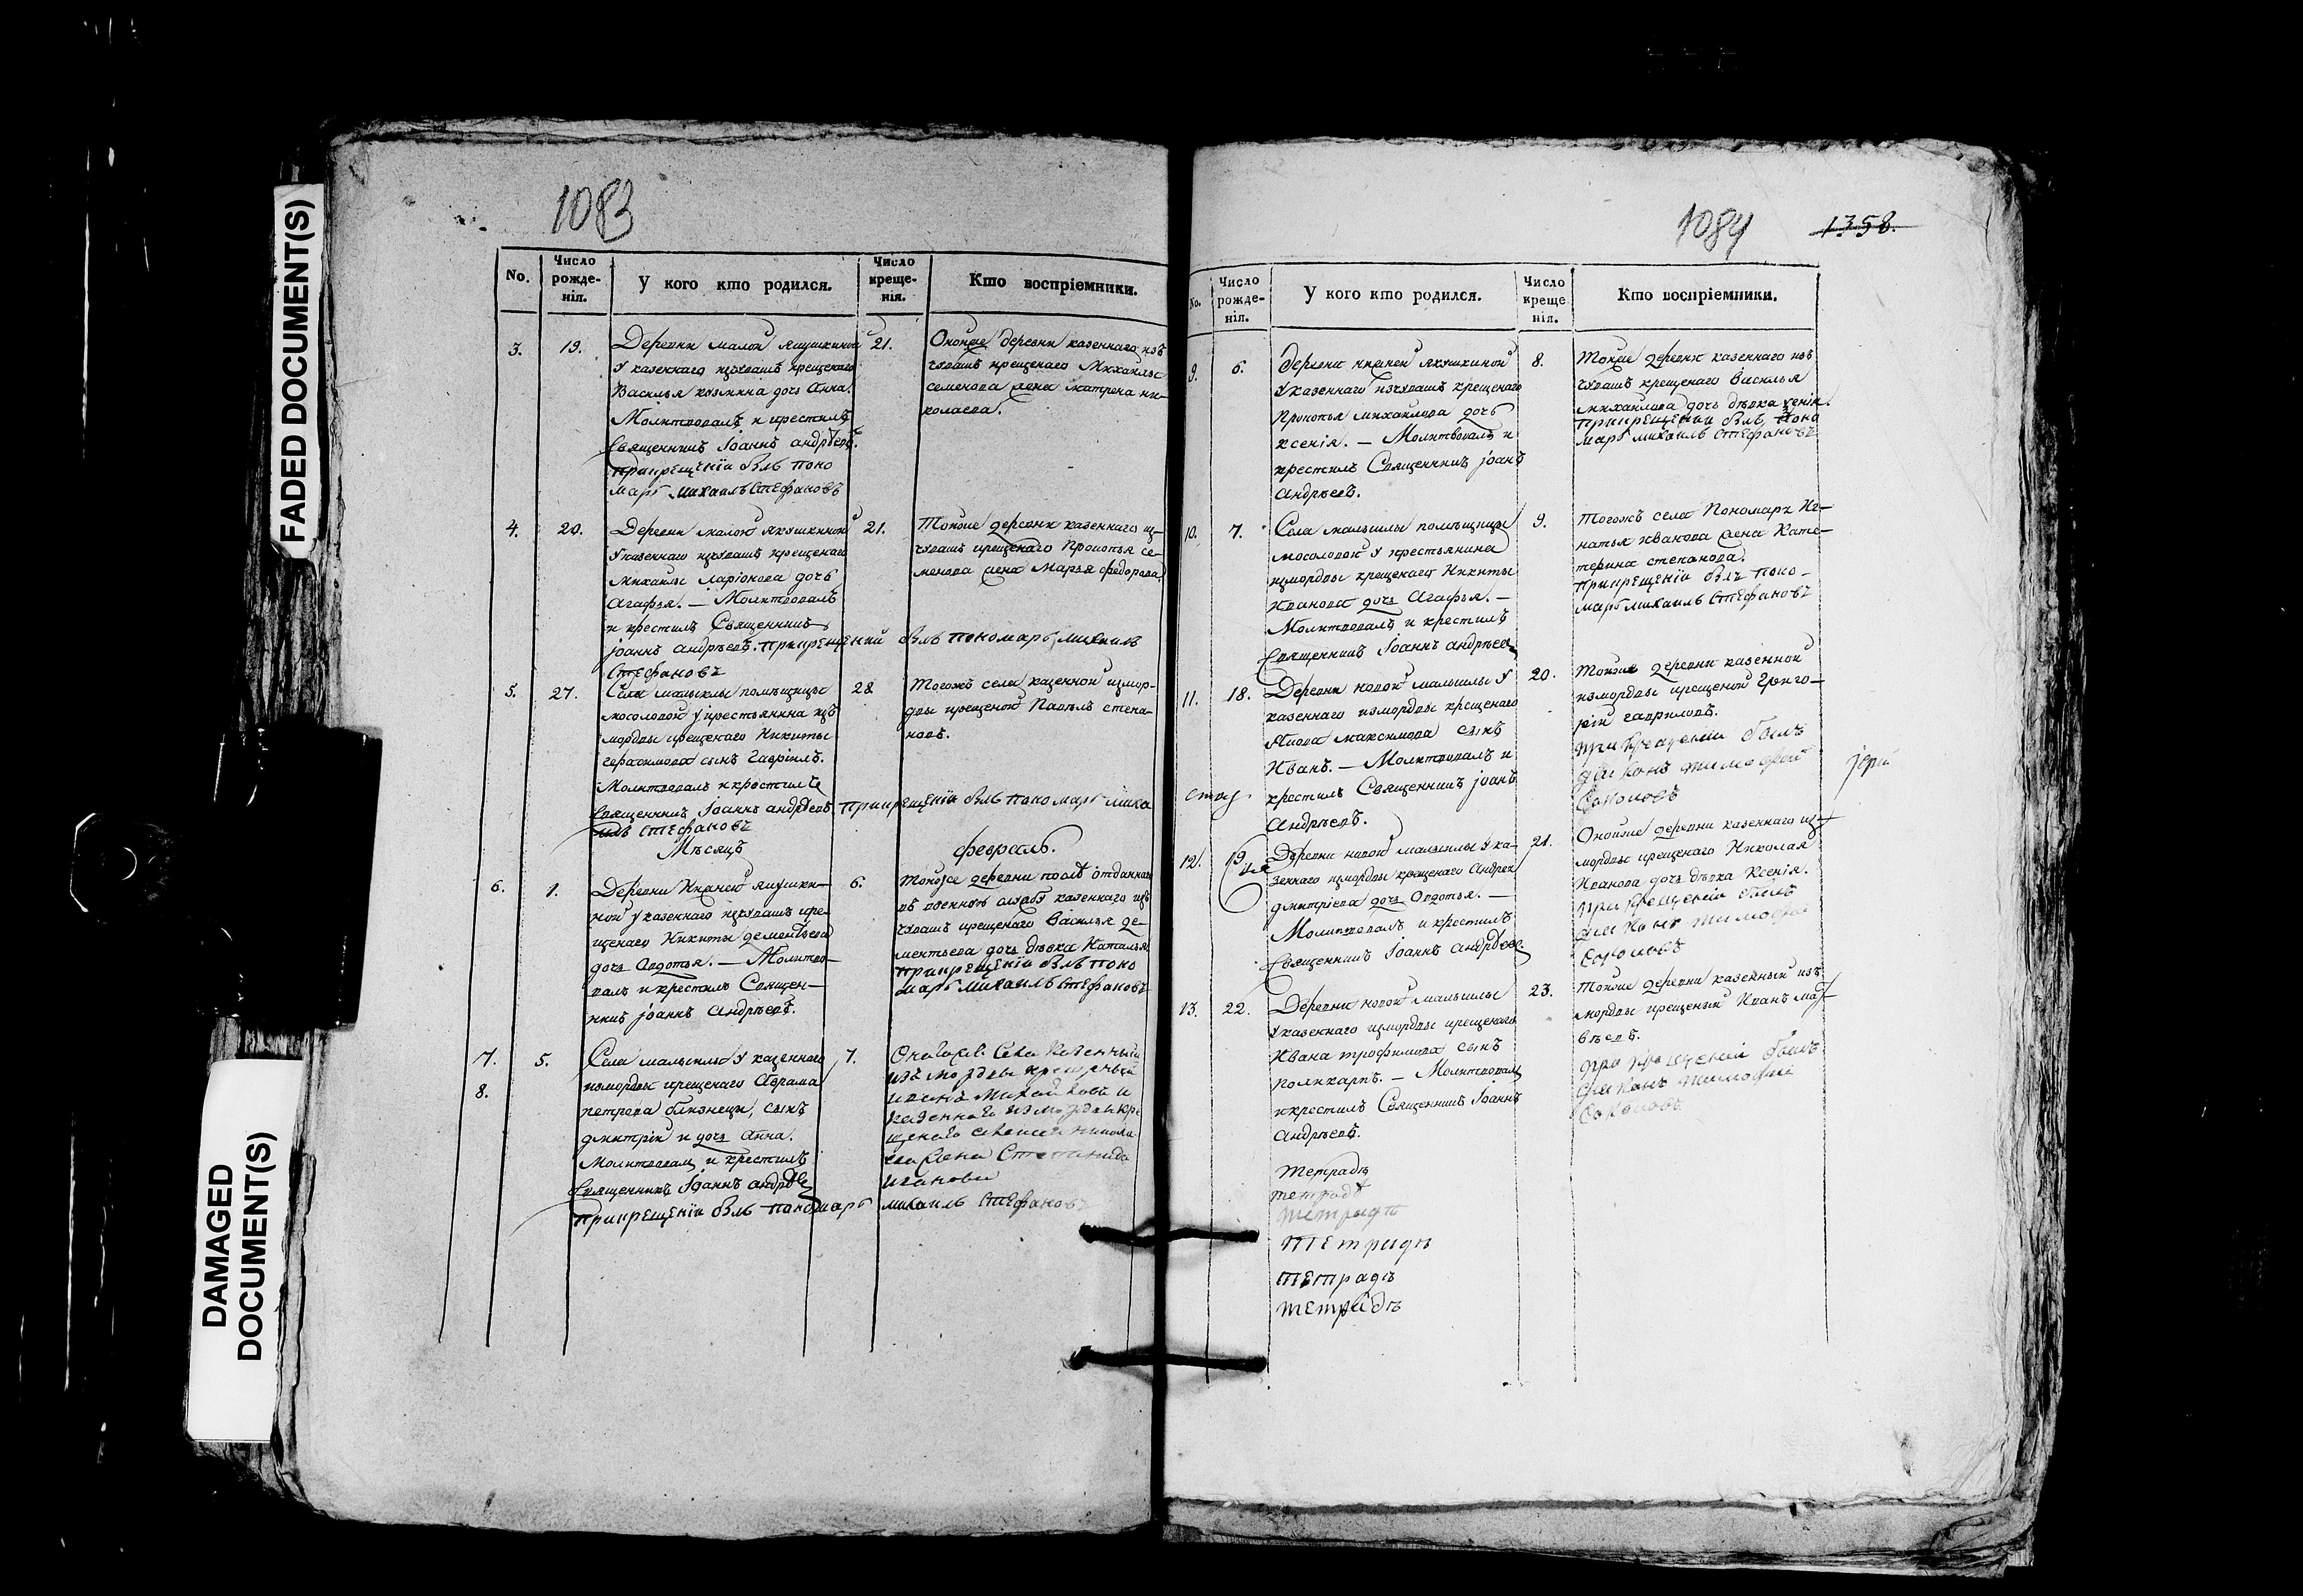 FADED DOCUMENT(S)
DAMAGED
DOCUMENT(S)
1083
No.
Число
рожде-
нія.
У кого кто родился.
Число
креще-
нія.
Кто воспріемники.
3.
19.
Деревни малой якушкиной
У казеннаго изчувашъ крещенаго
Василья козмина дочь Анна.
Молитвовалъ и крестилъ
Священникъ Іоаннъ андрѣевъ.
прикрещеніи былъ поно
марь михаилъ Стефановъ
21.
Оной же деревни казеннаго изъ
чувашъ крещенаго Михаилы
семенова жена матрена ни-
колаева.
4.
20.
Деревни малой якушкиной
У казеннаго изчувашъ крещенаго
михаилы ларіонова дочь
Агафья. — Молитвовалъ
и крестилъ Священникъ
іоаннъ андрѣевъ. прикрещеніи былъ пономарь михаилъ
Стефановъ
21.
Тойже деревни казеннаго из-
чувашъ крещенаго Прокопья се-
менова жена Марья федорова
5.
27.
Села малыклы помѣщицы
мосоловой у крестьянина изъ
мордвы крещенаго Никиты
герасимова сынъ Гавріилъ.
Молитвовалъ и крестилъ
Священникъ Іоаннъ андрѣевъ прикрещеніи былъ пономарь миха
илъ Стефановъ
28
Тогожъ села казенной измор-
двы крещеной Павелъ степа-
новъ.
Мѣсяцъ
февраль.
6.
1.
Деревни Нижней якушки-
ной у казеннаго изчувашъ кре-
щенаго Никиты дементьева
дочь Авдотья. — Молитво-
валъ и крестилъ Священ-
никъ іоаннъ Андрѣевъ.
6.
Тойже деревни отданнаго
въ военную службу казеннаго изъ
чувашъ крещенаго Василья де-
ментьева дочь дѣвка Наталья
прикрещеніи былъ поно
марь михаилъ Стефановъ
7.
8.
5.
Села малыклы У казеннаго
измордвы крещенаго Аврама
петрова близнецы, сынъ
дмитрій и дочь Анна.
Молитвовалъ и крестилъ
Священникъ Іоаннъ андрѣе
прикрещеніи былъ пономарь михаилъ Стефановъ
7.
Онагожъ Села Казенный
изъ мордвы крещеный
иванъ Михайловъ и
казеннаго измордвы кре
щенаго никола
ева жена Степанида
иванова
1084
1358.
No.
Число
рожде-
нія.
У кого кто родился.
Число
креще
нія.
Кто воспріемники.
9.
6.
Деревни нижней якушкиной
У казеннаго изчувашъ крещенаго
Прокопья михаилова дочь
ксенія. — Молитвовалъ и
крестилъ Священникъ іоанъ
Андрѣевъ.
8.
Тойже деревни казеннаго изъ
чувашъ крещенаго Василья
михаилова дочь дѣвка ксенія.
прикрещеніи былъ поно
марь михаилъ Стефановъ
10.
7.
Села малыклы помѣщицы
мосоловой У крестьянина
измордвы крещенаго Никиты
Иванова дочь Агафья. —
Молитвовалъ и крестилъ
Священникъ Іоаннъ андрѣев
9.
Тогожъ села Пономаря Иг-
натья иванова жена Кате-
терина степанова.
прикрещеніи былъ поно-
марь михаилъ Стефановъ
11.
18.
Деревни новой малыклы У
казеннаго измордвы крещенаго
максимова сынъ
Иванъ. — Молитвовалъ и
крестилъ Священникъ іоанъ
Андрѣевъ.
20.
Тойже деревни казенной
измордвы крещеной Григо-
рій гавриловъ.
при крещеніи былъ
діаконъ тимофей
Соколовъ
12.
19.
Деревни новой малыклы У ка-
зеннаго измордвы крещенаго Андрея
дмитріева дочь Авдотья. —
Молитвовалъ и крестилъ
Священникъ Іоаннъ андрѣев
21.
Онойже деревни казеннаго из
мордвы крещенаго Николая
Иванова дочь дѣвка Ксенія.
при крещеніи былъ
діаконъ тимофей
Соколовъ
13.
22.
Деревни новой малыклы
У казеннаго измордвы крещенаго
Ивана трофимова сынъ
поликарпъ. — Молитвовалъ
и крестилъ Священникъ Іоаннъ
Андрѣевъ.
23.
Тойже деревни казенный изъ
мордвы крещеный Иванъ мат
вѣевъ.
при крещеніи былъ
діаконъ тимофей
Соколовъ
Тетрадь
тетрадь
тетрадь
тетрадь
тетрадь
тетрадь